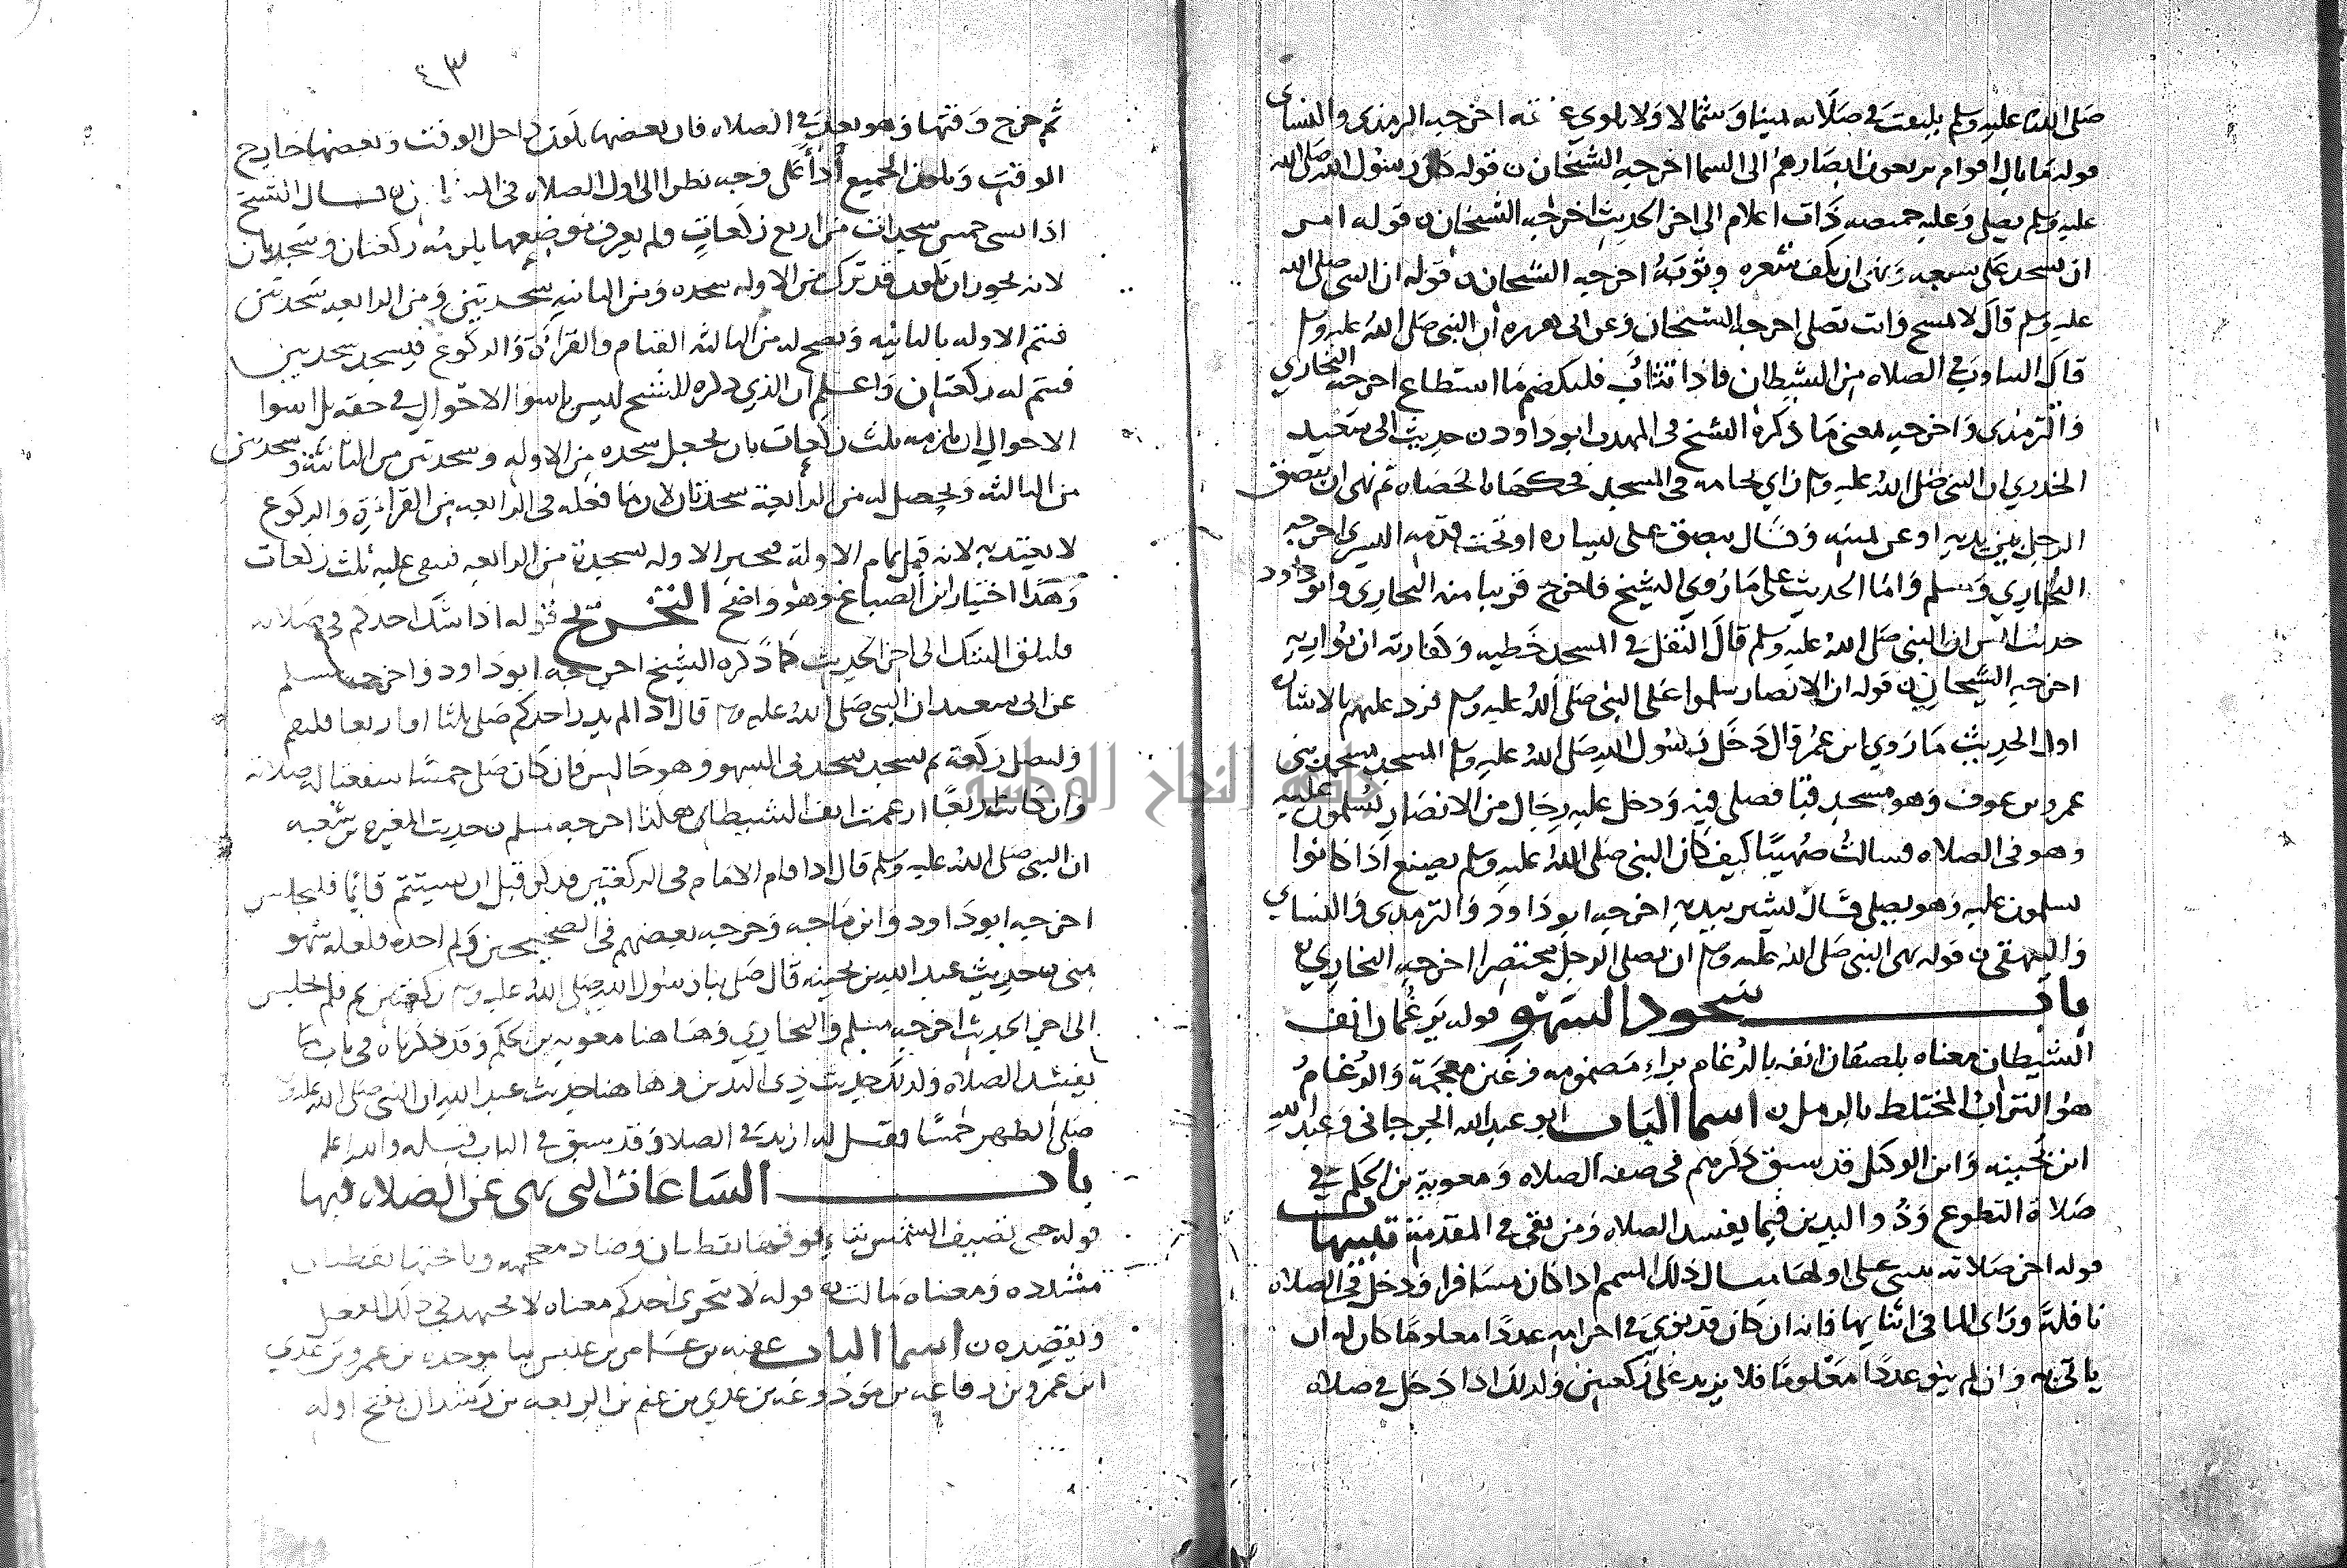 صلى الله عليه وسلم يلتفت في صلاته يمينا وشمالا ولا يلوي اخرجه الترمذي والنساى
قوله ما بال اقوام يرفعون ابصارهم الى السما اخرجه الشيخان ن قوله كان رسول الله صلى الله
عليه وسلم يصلي وعليه خميصه ذات اعلام الى اخر الحديث اخرجه الشيخان ن قوله امر
ان يسجد على سبعه ونهى ان يكف شعره وثوبه اخرجه الشيخان ن قوله ان النبي صلى الله
عليه وسلم قال لا تمسح وانت تصلي اخرجه الشيخان وعن ابى هريره ان النبي صلى الله عليه وسلم
قال التثاوب في الصلاه من الشيطان فاذا تثائب فليكظم ما استطاع اخرجه البخاري
والترمذي واخرجه بمعنى ما ذكره الشيخ في المهذب ابو داود ن حديث ابى سعيد
الخدري ان النبي صلى الله عليه وسلم راي نخامه في المسجد فحكها بالحصاه ثم نهى ان يبصق
الرجل بين يديه او عن يمينه وقال يبصق على يساره او تحت قدمه اليسرى اخرجه
البخاري ومسلم واما الحديث على ما روي الشيخ فاخرج قريبا منه البخاري وابو داود
حديث انس ان النبي صلى الله عليه وسلم قال التفل في المسجد خطيه وكفارته ان تواريه
اخرجه الشيخان ن قوله ان الانصار سلموا على النبي صلى الله عليه وسلم فرد عليهم بالاشاره
اول الحديث ما روي ابن عمر قال دخل رسول الله صلى الله عليه وسلم المسجد مسجد بني
عمرو بن عوف وهو مسجد قبا فصلى فيه ودخل عليه رجال من الانصار يسلمون عليه
وهو في الصلاه فسالت صهيبا كيف كان النبي صلى الله عليه وسلم يصنع اذا كانوا
يسلمون عليه وهو يصلي قال يشير بيده اخرجه ابو داود والترمذي والنساي
والبيهقي ن قوله نهى النبي صلى الله عليه وسلم ان يصلي الرجل مختصرا اخرجه البخاري ن
باب سجود السهو قوله يرغمان انف
الشيطان معناه يلصقان انفه بالرغام براء مضمومه وغين معجمة والرغام
هو التراب المختلط بالرمل ن اسما الباب ابو عبد الله الجرجاني وعبد الله
ابن بحينه وابن الوكيل قد سبق ذكرهم في صفه الصلاه ومعوية بن الحكم في
صلاة التطوع وذو اليدين فيما يفسد الصلاه ومن بقى في المقدمة تنبيهات
قوله اخر صلاته يبنى على اولها مثال ذلك المتمم اذا كان مسافرا ودخل في الصلاه
نافلة وراى الما في اثنايها فانه ان كان قد نوي في احرامه عددا معلوما كان له ان
ياتي به وان لم ينو عددا معلوما فلا يزيد على ركعتين وكذلك اذا دخل في صلاه
٤٣
ثم خرج وقتها وهو بعد في الصلاه فان بعضها يكون داخل الوقت وبعضها خارج
الوقت ويكون الجميع أداً على وجه نظرا الى اول الصلاه قال الشيخ
اذا نسى خمس سجدات من اربع ركعات ولم يعرف موضعها يلزمه ركعتان وسجدتان
لانه يجوز ان يكون قد ترك من الاوله سجده ومن الثانيه سجدتين ومن الرابعه سجدتين
فتتم الاوله بالثالثه القيام والقراة والركوع فيسجد سجدتين
فتتم له ركعتان واعلم ان الذي ذكره الشيخ ليس باسوا الاحوال في حقه بل اسوا
الاحوال ان يلزمه ثلث ركعات بان يجعل سجده من الاوله وسجدتين من الثانية وسجدتين
من الثالثه ويحصل له من الرابعة سجدتان لان ما فعله في الرابعه من القراءة والركوع
لا يعتد به لانه قبل تمام الاولة فتجبر الاوله بسجدة من الرابعه فيبقى عليه ثلث ركعات
وهذا اختيار ابن الصباغ وهو واضح التخريج قوله اذا شك احدكم في صلاته
فليلق الشك الى اخر الحديث كما ذكره الشيخ اخرجه ابو داود واخرجه مسلم
عن ابى سعيد ان النبي صلى الله عليه وسلم قال اذا لم يدر احدكم صلى ثلثا او اربعا فليقم
وليصل ركعة ثم يسجد سجدتى السهو وهو جالس فان كان صلى خمسا شفعتا له صلاته
وان كانت اربعا ارغمت انف الشيطان هكذا اخرجه مسلم ن حديث المغيره بن شعبه
ان النبي صلى الله عليه وسلم قال اذا قام الامام في الركعتين فذكر قبل ان يستتم قائما فليجلس
اخرجه ابو داود وابن ماجه وخرجه بعضهم في الصحيحين ولم اجده فلعله سهو
منى ن حديث عبد الله بن بحينه قال صلى بنا رسول الله صلى الله عليه وسلم ركعتين ثم قام فلم يجلس
الى اخر الحديث اخرجه مسلم والبخاري وها هنا معويه بن الحكم وقد ذكرناه في باب ما
يفسد الصلاه وكذلك حديث ذى اليدين وها هنا حديث عبد الله ان النبي صلى الله عليه
صلى الظهر خمسا فقيل له ازيد في الصلاه وقد سبق في الباب قبله والله اعلم
باب الساعات التي نهى عن الصلاه فيها
قوله حتى تضيف الشمس بتاء فوقها نقطتان وضاد معجمه وياء تحتها نقطتان
مشدده ومعناه مالت ن قوله لا يتحرى احدكم معناه لا يجتهد في ذلك الفعل
ويقصده ن اسما الباب عقبه بن عامر بن عبس بيا موحده بن عمرو بن عدي
ابن عمرو بن رفاعه بن مودوعه بن عدي بن غنم بن الربعه بن رشدان بفتح اوله